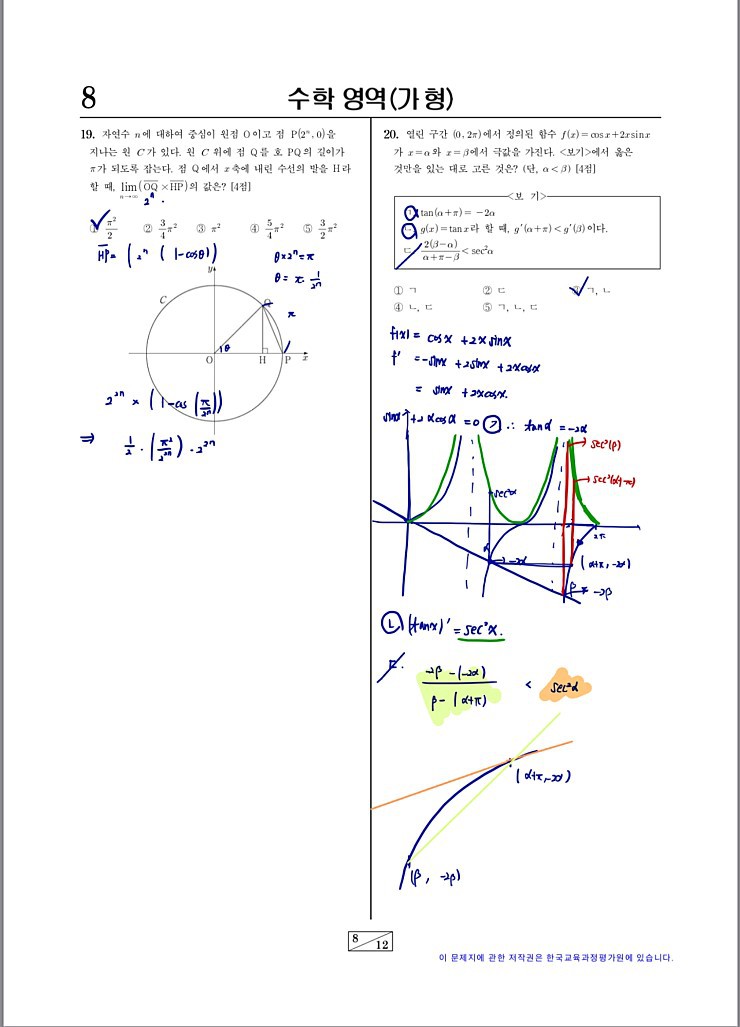 8
수학 영역(가형)
19. 자연수 n에 대하여 중심이 원점 O이고 점 P(2ⁿ, 0)을
지나는 원 C가 있다. 원 C 위에 점 Q를 호 PQ의 길이가
π가 되도록 잡는다. 점 Q에서 x축에 내린 수선의 발을 H라
할 때, lim(OQ×HP)의 값은? [4점]
n→∞
2ⁿ ·
① π²/2 ② 3/4 π² ③ π² ④ 5/4 π² ⑤ 3/2 π²
HP = ( 2ⁿ ( 1-cosθ))
θ×2ⁿ=π
θ= π · 1/2ⁿ
π
y
C
Q
θ
O H P x
2²ⁿ × ( 1-cos (π/2ⁿ))
⇒ 1/2 · (π²/2²ⁿ) · 2²ⁿ
20. 열린 구간 (0, 2π)에서 정의된 함수 f(x)=cosx+2xsinx
가 x=α와 x=β에서 극값을 가진다. <보기>에서 옳은
것만을 있는 대로 고른 것은? (단, α<β) [4점]
<보 기>
ㄱ. tan(α+π) = -2α
ㄴ. g(x)=tanx라 할 때, g′(α+π)<g′(β)이다.
ㄷ. 2(β-α)/(α+π-β) < sec²α
① ㄱ ② ㄷ ③ ㄱ, ㄴ
④ ㄴ, ㄷ ⑤ ㄱ, ㄴ, ㄷ
f(x) = cosx +2x sinx
f′ = -sinx +2sinx + 2xcosx
= sinx +2xcosx.
sinα +2αcosα =0 ㄱ ∴ tanα = -2α
sec²(β)
sec²(α+π)
sec²α
2π
α
-2α
(α+π, -2α)
β
-2β
ㄴ (tanx)′ = sec²x.
ㄷ. -2β-(-2α)/β-(α+π) < sec²α
(α+π, -2α)
(β, -2β)
8
12
이 문제지에 관한 저작권은 한국교육과정평가원에 있습니다.